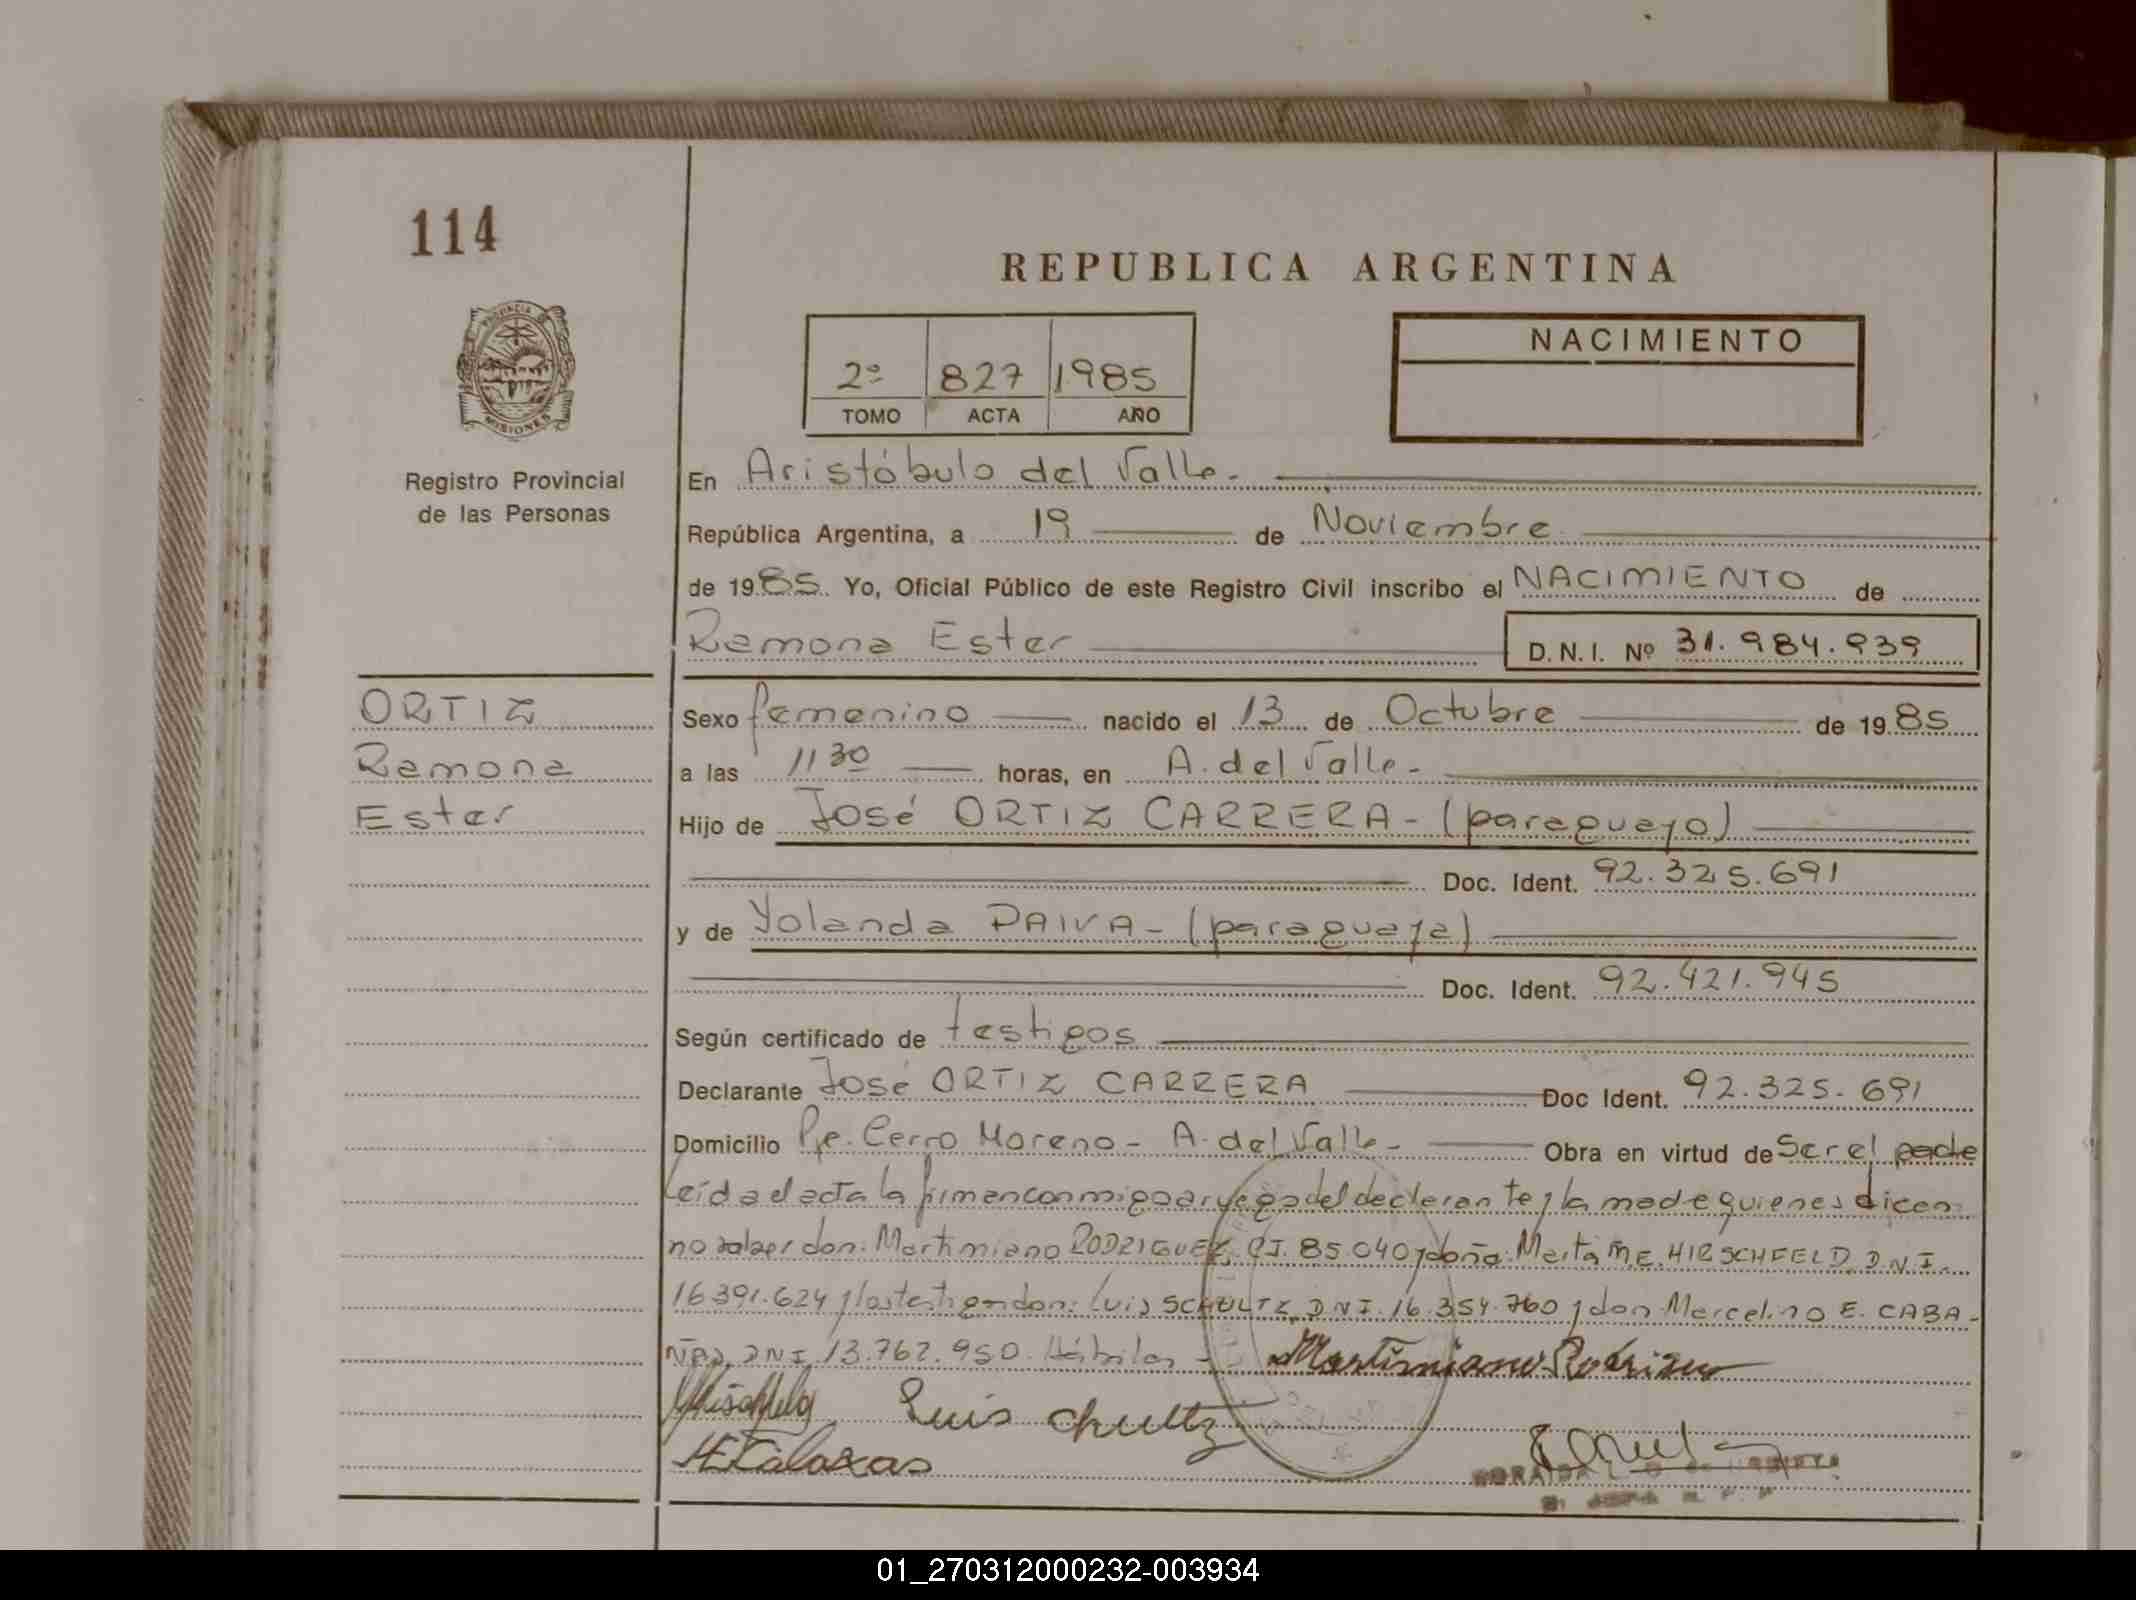 114
REPUBLICA ARGENTINA
PROVINCIA DE
MISIONES
Registro Provincial
de las Personas
2º 827 1985
TOMO ACTA AÑO
NACIMIENTO
En Aristóbulo del Valle.-
República Argentina, a 19 de Noviembre
de 1985. Yo, Oficial Público de este Registro Civil inscribo el NACIMIENTO de
Ramona Ester D.N.I. Nº 31.984.939
ORTIZ
Ramona
Ester
Sexo femenino nacido el 13 de Octubre de 1985
a las 11 30 horas, en A. del Valle.-
Hijo de José ORTIZ CARRERA - (paraguayo)
Doc. Ident. 92.325.691
y de Yolanda PAIVA - (paraguaya)
Doc. Ident. 92.421.945
Según certificado de testigos
Declarante José ORTIZ CARRERA Doc Ident. 92.325.691
Domicilio Pje. Cerro Moreno - A. del Valle.- Obra en virtud de Ser el padre
Leída el acta la firman conmigo a ruego del declarante y la madre quienes dicen
no saber don: Martimiano RODRIGUEZ, CI. 85.040 y doña: Marta M.E. HIRSCHFELD, D.N.I.
16.391.624 y los testigos don: Luis SCHULTZ, DNI. 16.354.760 y don Marcelino E. CABA-
ÑAS, DNI 13.762.950. Hábiles -
Martimiano Rodriguez
Luis chultz
01_270312000232-003934